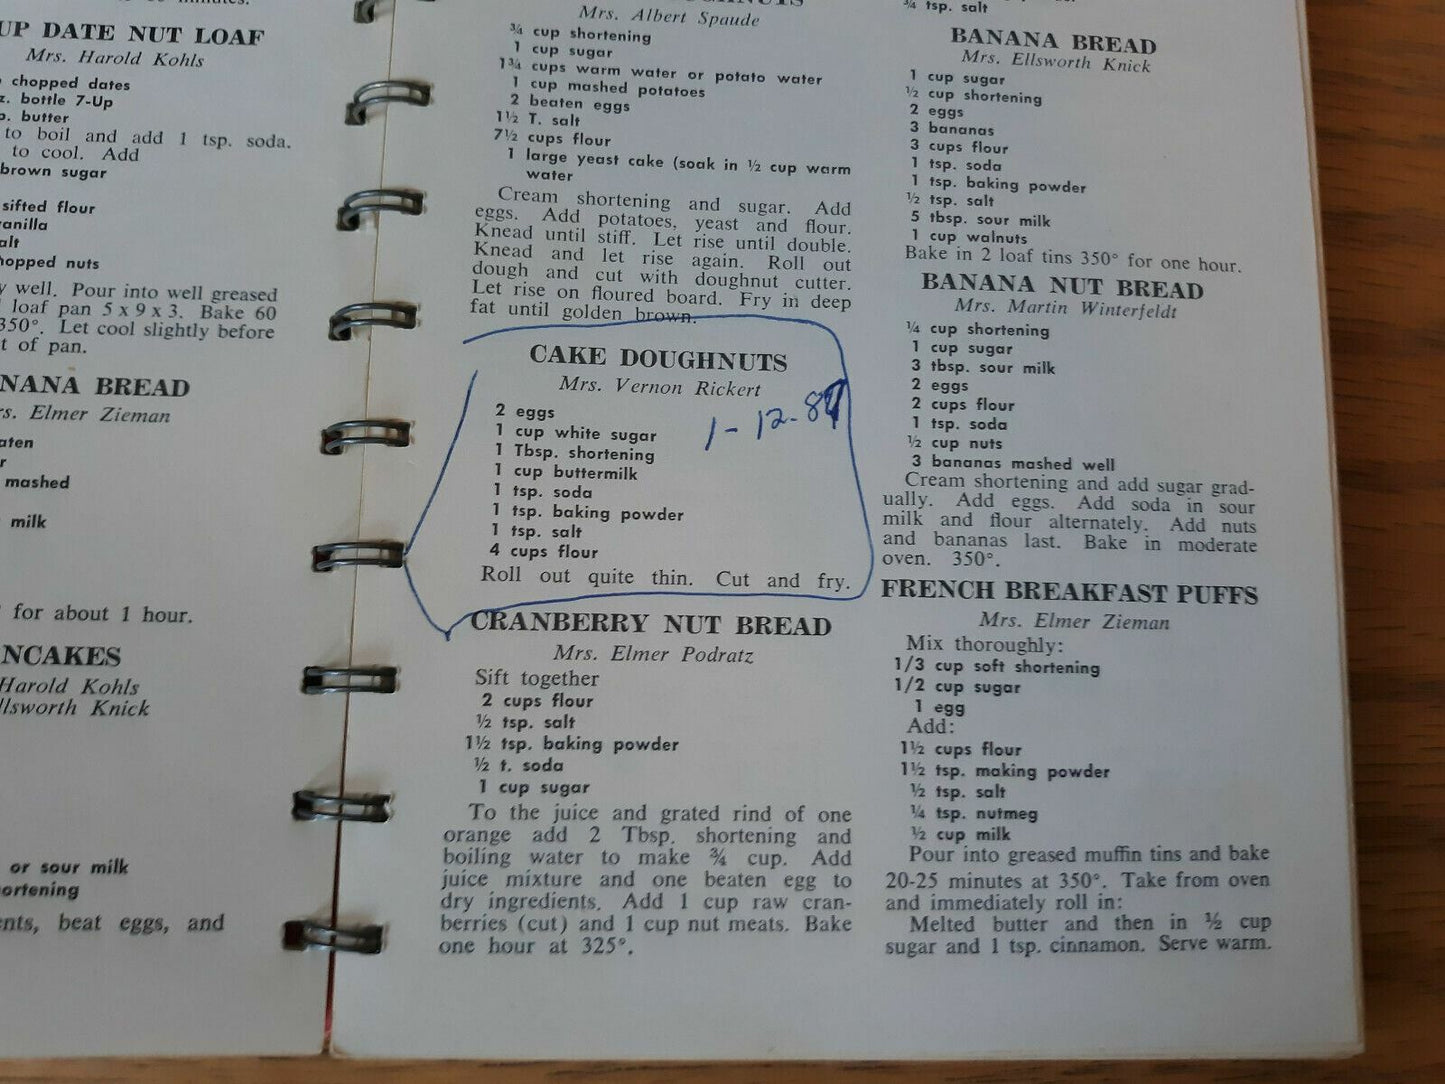 UP DATE NUT LOAF
Mrs. Harold Kohls
chopped dates
z. bottle 7-Up
butter
to boil and add 1 tsp. soda.
to cool. Add
brown sugar
sifted flour
anilla
alt
hopped nuts
y well. Pour into well greased
loaf pan 5 x 9 x 3. Bake 60
350°. Let cool slightly before
t of pan.
NANA BREAD
rs. Elmer Zieman
aten
r
mashed
milk
for about 1 hour.
NCAKES
Harold Kohls
llsworth Knick
or sour milk
ortening
nts, beat eggs, and
Mrs. Albert Spaude
¾ cup shortening
1 cup sugar
1¾ cups warm water or potato water
1 cup mashed potatoes
2 beaten eggs
1½ T. salt
7½ cups flour
1 large yeast cake (soak in ½ cup warm
water
Cream shortening and sugar. Add
eggs. Add potatoes, yeast and flour.
Knead until stiff. Let rise until double.
Knead and let rise again. Roll out
dough and cut with doughnut cutter.
Let rise on floured board. Fry in deep
fat until golden brown.
CAKE DOUGHNUTS
Mrs. Vernon Rickert
2 eggs
1 cup white sugar
1-12-8
1 Tbsp. shortening
1 cup buttermilk
1 tsp. soda
1 tsp. baking powder
1 tsp. salt
4 cups flour
Roll out quite thin. Cut and fry.
CRANBERRY NUT BREAD
Mrs. Elmer Podratz
Sift together
2 cups flour
½ tsp. salt
1½ tsp. baking powder
½ t. soda
1 cup sugar
To the juice and grated rind of one
orange add 2 Tbsp. shortening and
boiling water to make ¾ cup. Add
juice mixture and one beaten egg to
dry ingredients. Add 1 cup raw cran-
berries (cut) and 1 cup nut meats. Bake
one hour at 325°.
¾ tsp. salt
BANANA BREAD
Mrs. Ellsworth Knick
1 cup sugar
½ cup shortening
2 eggs
3 bananas
3 cups flour
1 tsp. soda
1 tsp. baking powder
½ tsp. salt
5 tbsp. sour milk
1 cup walnuts
Bake in 2 loaf tins 350° for one hour.
BANANA NUT BREAD
Mrs. Martin Winterfeldt
¼ cup shortening
1 cup sugar
3 tbsp. sour milk
2 eggs
2 cups flour
1 tsp. soda
½ cup nuts
3 bananas mashed well
Cream shortening and add sugar grad-
ually. Add eggs. Add soda in sour
milk and flour alternately. Add nuts
and bananas last. Bake in moderate
oven. 350°.
FRENCH BREAKFAST PUFFS
Mrs. Elmer Zieman
Mix thoroughly:
1/3 cup soft shortening
1/2 cup sugar
1 egg
Add:
1½ cups flour
1½ tsp. making powder
½ tsp. salt
¼ tsp. nutmeg
½ cup milk
Pour into greased muffin tins and bake
20-25 minutes at 350°. Take from oven
and immediately roll in:
Melted butter and then in ½ cup
sugar and 1 tsp. cinnamon. Serve warm.